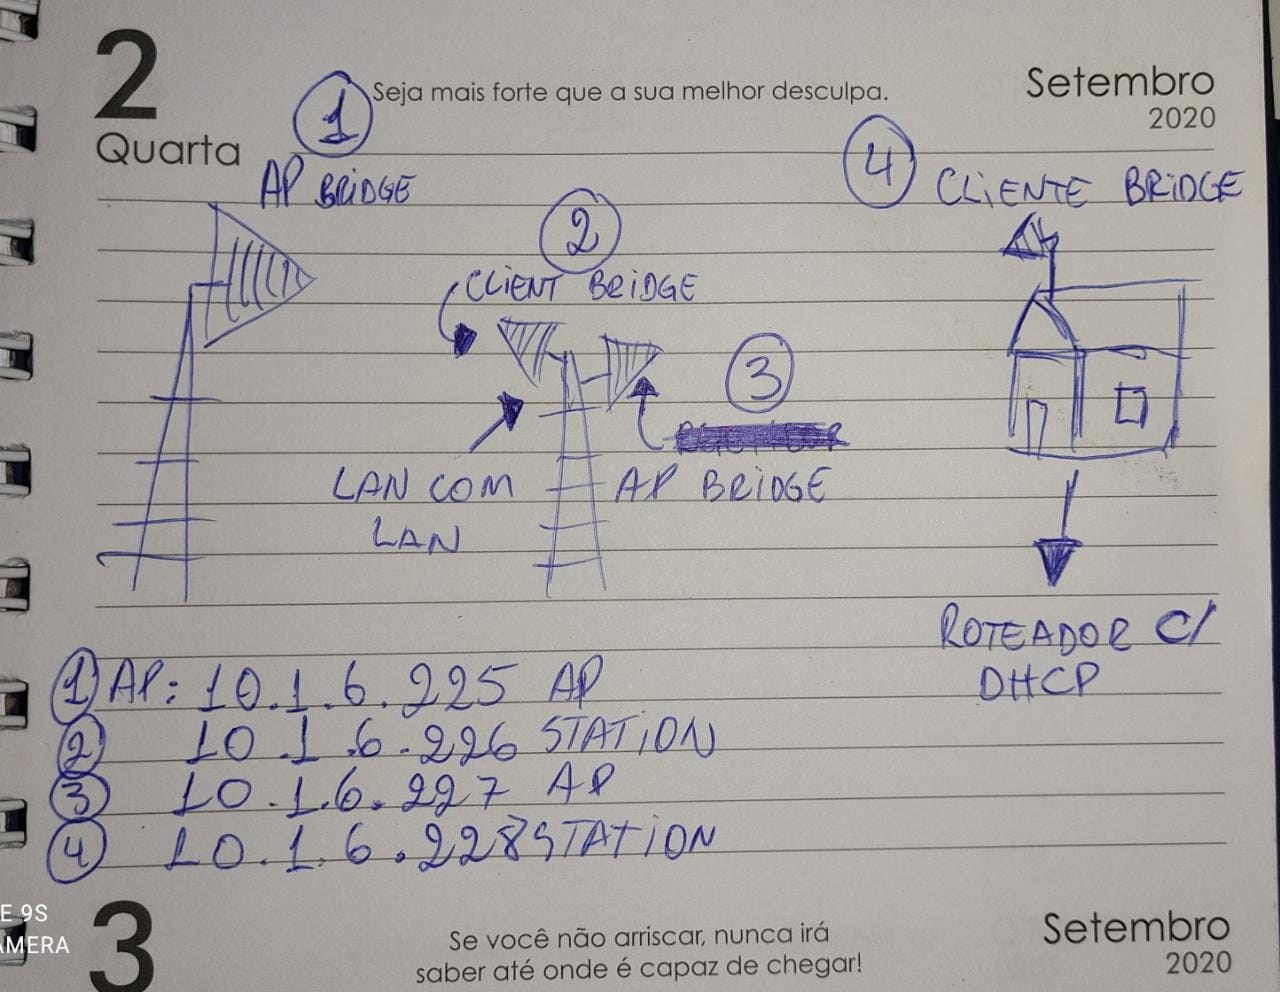 2
Quarta
Seja mais forte que a sua melhor desculpa.
Setembro
2020
1
AP BRIDGE
2
CLIENT BRIDGE
3
AP BRIDGE
LAN COM
LAN
4
CLIENTE BRIDGE
ROTEADOR C/
DHCP
1 AP: 10.1.6.225 AP
2 10.1.6.226 STATION
3 10.1.6.227 AP
4 10.1.6.228 STATION
E 9S
AMERA
3
Se você não arriscar, nunca irá
saber até onde é capaz de chegar!
Setembro
2020